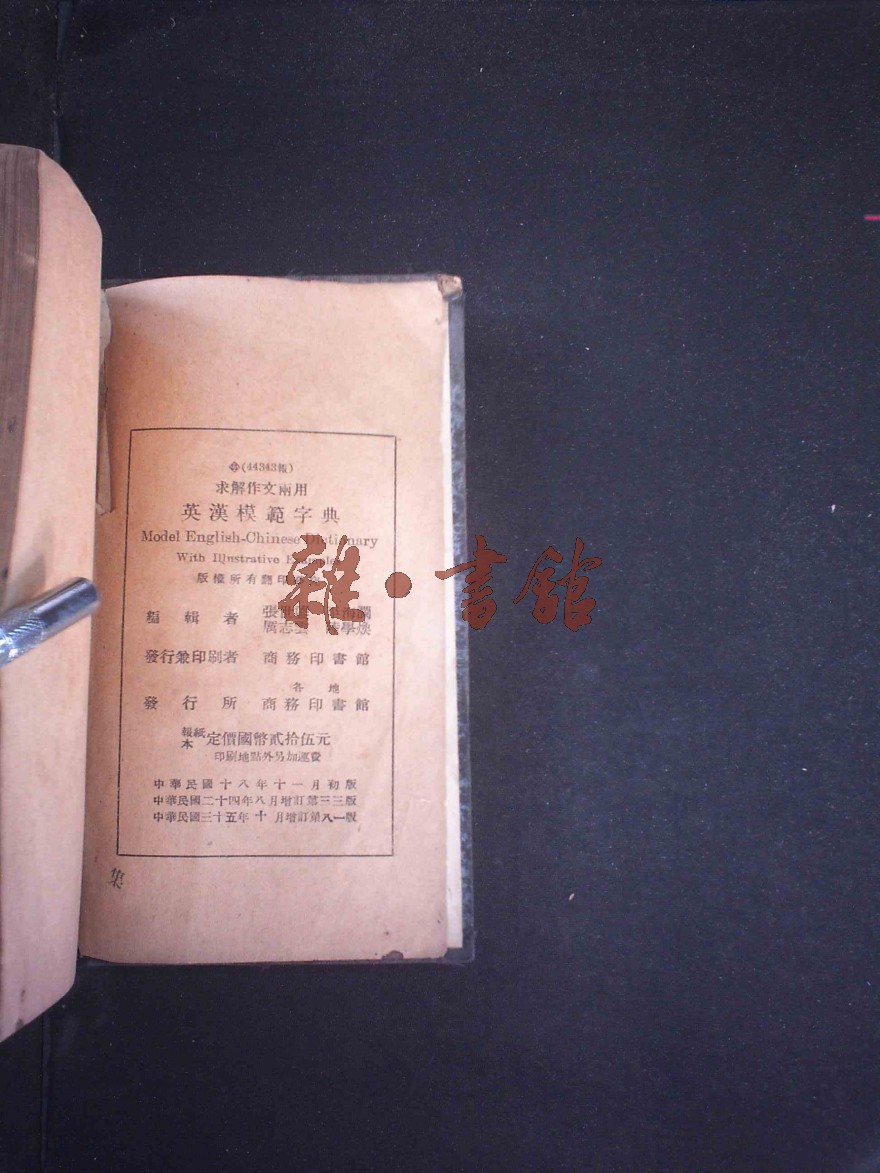 (44343報)
求解作文兩用
英漢模範字典
Model English-Chinese Dictionary
With Illustrative Examples
版權所有翻印必究
編輯者 張 瀾
厲志雲 學煥
發行兼印刷者 商務印書館
各地
發行所 商務印書館
報紙本 定價國幣貳拾伍元
印刷地點外另加運費
中華民國十八年十一月初版
中華民國二十四年八月增訂第三三版
中華民國三十五年十月增訂第八一版
集
雜·書館